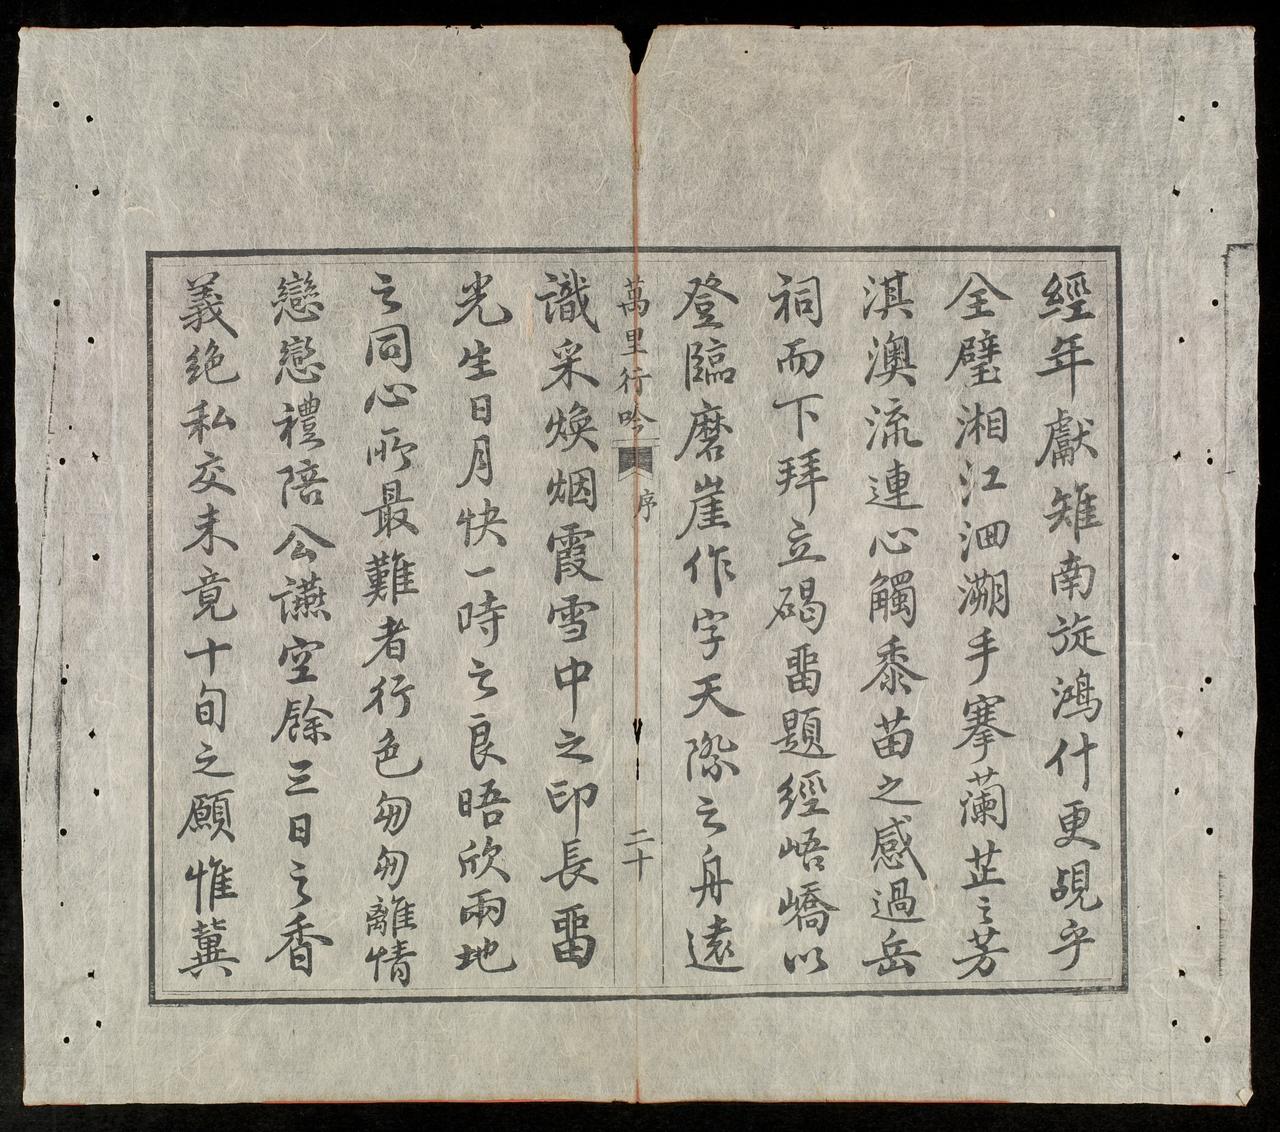 經年獻雉南旋鴻什更覩乎
全璧湘江洄溯手搴蘭芷之芳
淇澳流連心觸黍苗之感過岳
祠而下拜立碣畱題經峿嶠以
登臨磨崖作字天際之舟遠
萬里行吟
序
二十
識采煥烟霞雪中之印長畱
光生日月快一時之良晤欣兩地
之同心所最難者行色匆匆離情
戀戀禮陪公讌空餘三日之香
義絶私交未竟十旬之願惟冀